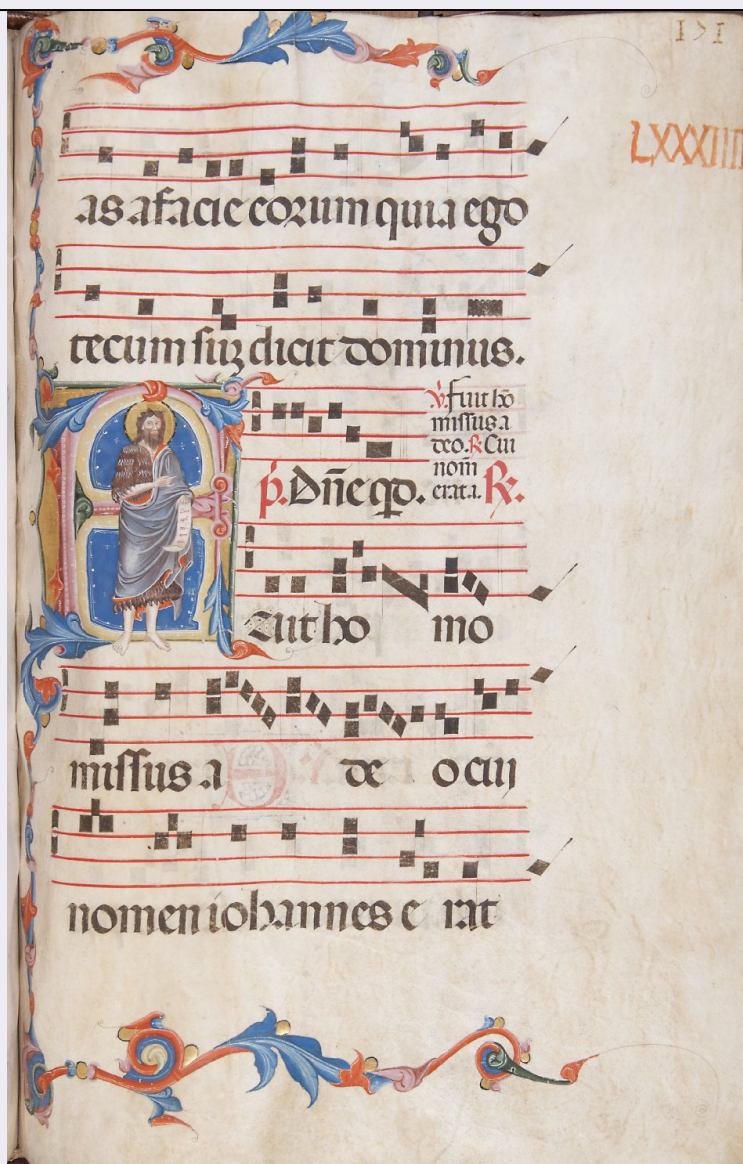 171
LXXXIIII
as a facie eorum quia ego
tecum suz dicit dominus.
v. fuit ho
missus a
deo. R Cui
nom
erat.i.
p. Dn̄e qd. R.
Fuit ho mo
missus a de o cuij
nomen iohannes e rat